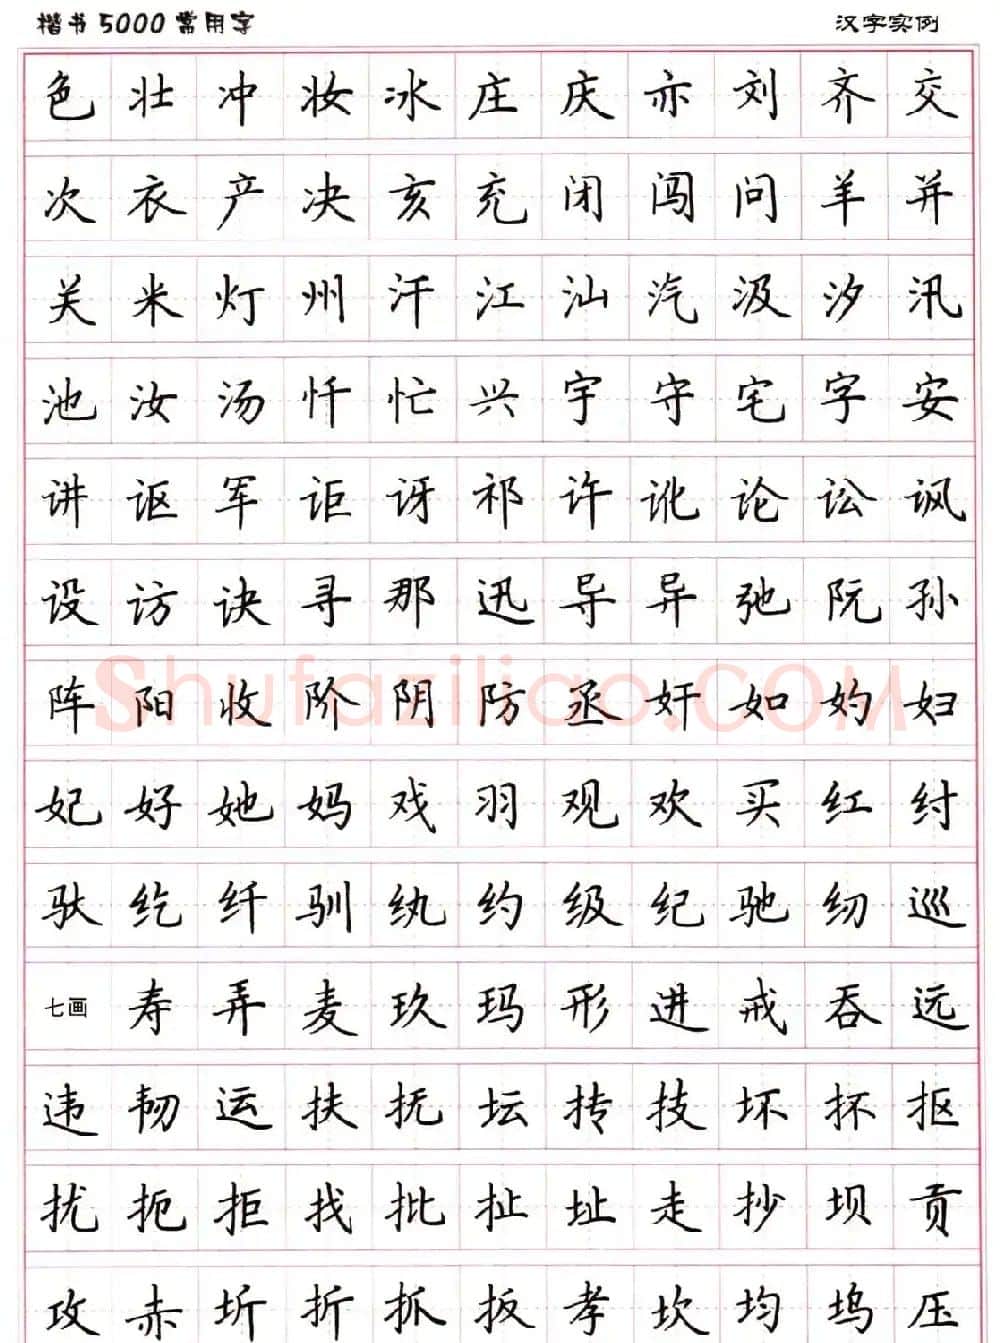 楷书5000常用字 汉字实例
色 壮 冲 妆 冰 庄 庆 亦 刘 齐 交
次 衣 产 决 亥 充 闭 闯 问 羊 并
关 米 灯 州 汗 江 汕 汽 汲 汐 汛
池 汝 汤 忏 忙 兴 宇 守 宅 字 安
讲 讴 军 讵 讶 祁 许 讹 论 讼 讽
设 访 诀 寻 那 迅 导 异 弛 阮 孙
阵 阳 收 阶 阴 防 丞 奸 如 妁 妇
妃 好 她 妈 戏 羽 观 欢 买 红 纣
驮 纥 纤 驯 纨 约 级 纪 驰 纫 巡
七画 寿 弄 麦 玖 玛 形 进 戒 吞 远
违 韧 运 扶 抚 坛 抟 技 坏 抔 抠
扰 扼 拒 找 批 扯 址 走 抄 坝 贡
攻 赤 圻 折 抓 扳 孝 坎 均 坞 压
Shufaziliao.COM